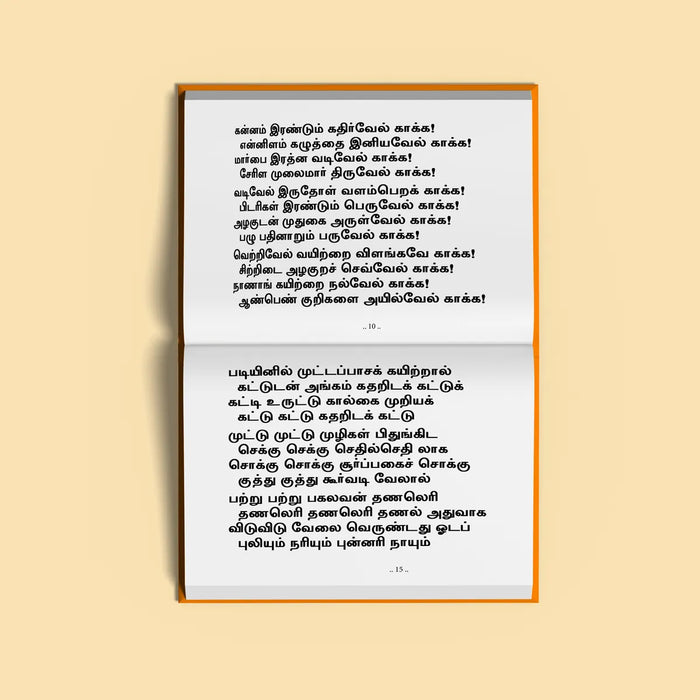 கன்னம் இரண்டும் கதிர்வேல் காக்க!
என்னிளம் கழுத்தை இனியவேல் காக்க!
மார்பை இரத்ன வடிவேல் காக்க!
சேரிள முலைமார் திருவேல் காக்க!
வடிவேல் இருதோள் வளம்பெறக் காக்க!
பிடரிகள் இரண்டும் பெருவேல் காக்க!
அழகுடன் முதுகை அருள்வேல் காக்க!
பழு பதினாறும் பருவேல் காக்க!
வெற்றிவேல் வயிற்றை விளங்கவே காக்க!
சிற்றிடை அழகுறச் செவ்வேல் காக்க!
நாணாங் கயிற்றை நல்வேல் காக்க!
ஆண்பெண் குறிகளை அயில்வேல் காக்க!
.. 10 ..
படியினில் முட்டப்பாசக் கயிற்றால்
கட்டுடன் அங்கம் கதறிடக் கட்டுக்
கட்டி உருட்டு கால்கை முறியக்
கட்டு கட்டு கதறிடக் கட்டு
முட்டு முட்டு முழிகள் பிதுங்கிட
செக்கு செக்கு செதில்செதி லாக
சொக்கு சொக்கு சூர்ப்பகைச் சொக்கு
குத்து குத்து கூர்வடி வேலால்
பற்று பற்று பகலவன் தணலெரி
தணலெரி தணலெரி தணல் அதுவாக
விடுவிடு வேலை வெருண்டது ஓடப்
புலியும் நரியும் புன்னரி நாயும்
.. 15 ..